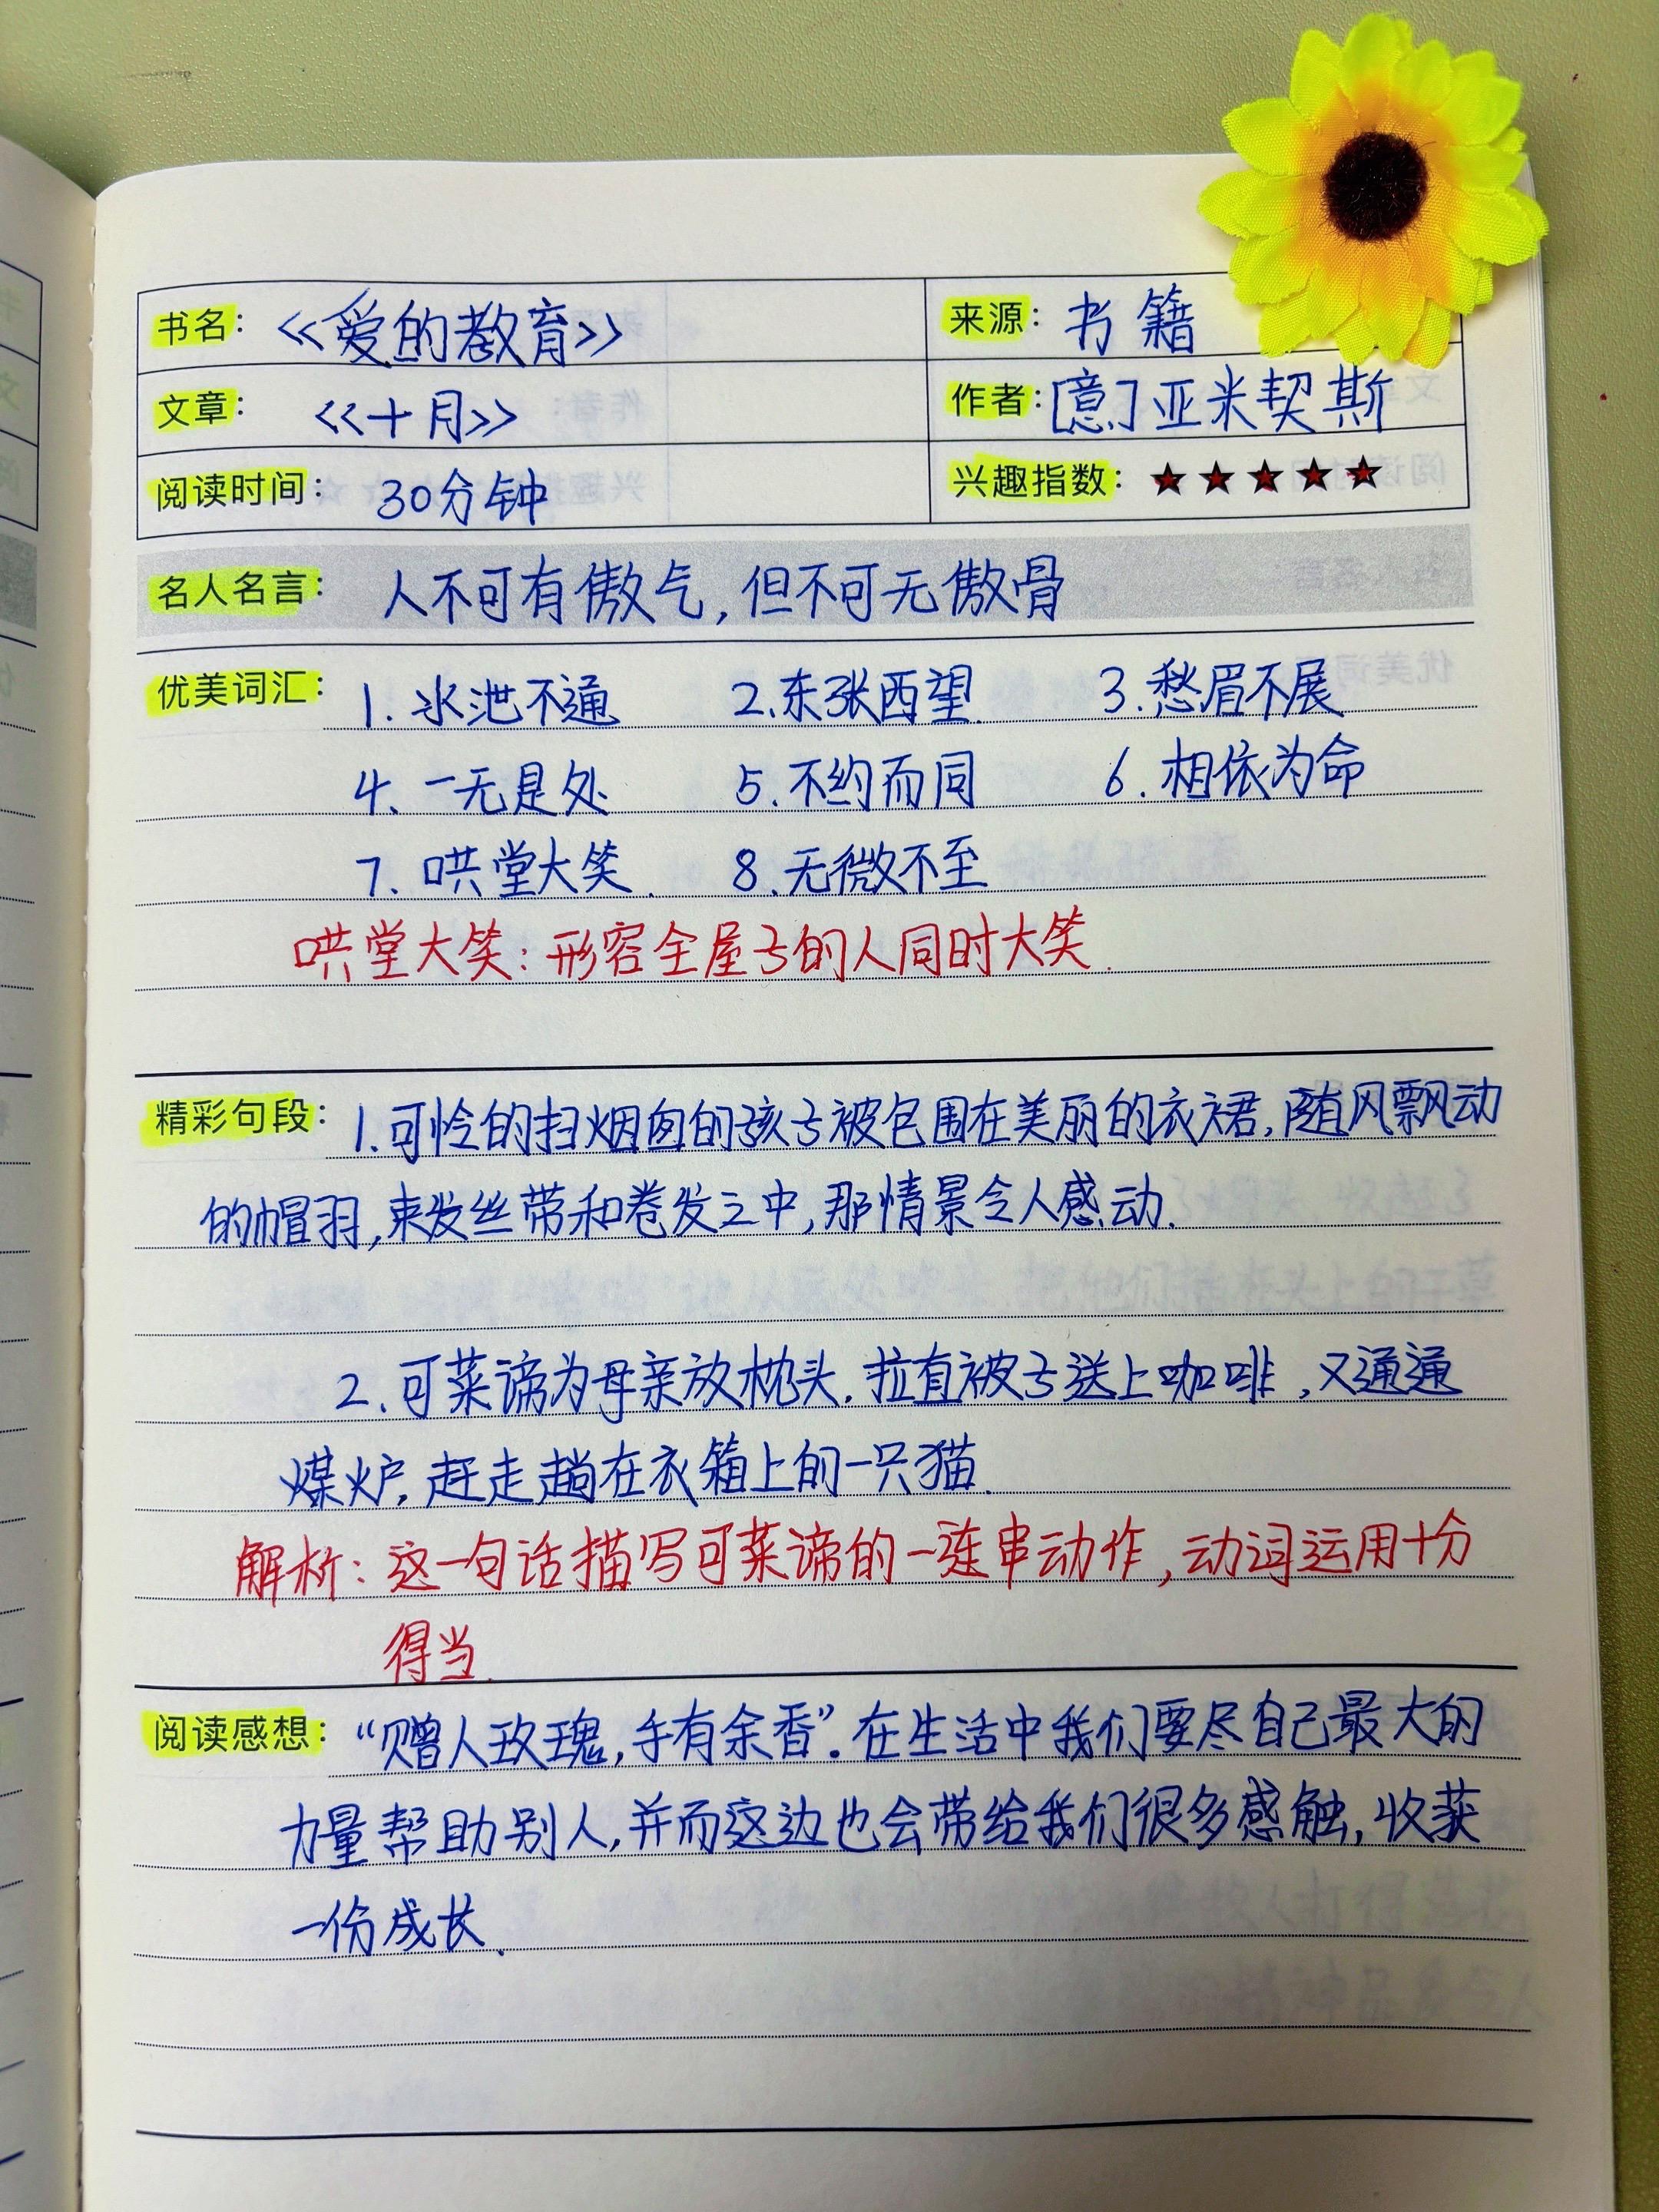 书名: <<爱的教育>> 来源: 书籍
文章: <<十月>> 作者: [意] 亚米契斯
阅读时间: 30分钟 兴趣指数: ★★★★★
名人名言: 人不可有傲气,但不可无傲骨
优美词汇: 1. 水泄不通 2.东张西望. 3.愁眉不展
4、一无是处 5.不约而同 6.相依为命
7. 哄堂大笑. 8.无微不至
哄堂大笑: 形容全屋子的人同时大笑.
精彩句段: 1.可怜的扫烟囱的孩子被包围在美丽的衣裙,随风飘动
的帽羽,束发丝带和卷发之中,那情景令人感动.
2.可莱谛为母亲放枕头.拉直被子送上咖啡,又通通
煤炉,赶走趟在衣箱上的一只猫.
解析: 这一句话描写可莱谛的一连串动作,动词运用十分
得当.
阅读感想: “赠人玫瑰,手有余香”。在生活中我们要尽自己最大的
力量帮助别人,并而这边也会带给我们很多感触,收获
一份成长.